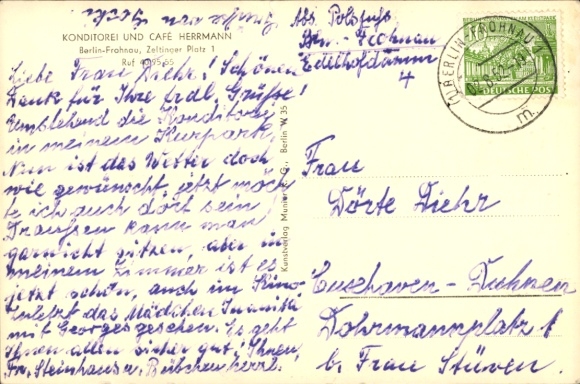 KONDITOREI UND CAFÉ HERRMANN
Berlin-Frohnau, Zeltinger Platz 1
Ruf 40 95 55
Liebe Frau Diehr! Schönen
Dank für Ihre frdl. Grüße!
Umstehend die Konditorei
in meinem Kurpark.
Nun ist das Wetter doch
wie gewünscht, jetzt möch
te ich auch dort sein!
Draussen kann man
garnicht sitzen, aber in
meinem Zimmer ist es
jetzt schön, auch im Kino
zuletzt das Mädchen Juanita
mit Georges gesehen. Es geht
Ihnen allen sicher gut! Ihnen,
Fr. Steinhauser, Bübchen herzl.
Abs.
Bln.-Frohnau
Edelhofdamm
4
BERLIN-FROHNAU 1
m
DEUTSCHE POST
Berlin W 35
Kunstverlag
Frau
Dörte Diehr
Cuxhaven-Duhnen
Dohrmannplatz 1
b. Frau Stüven.